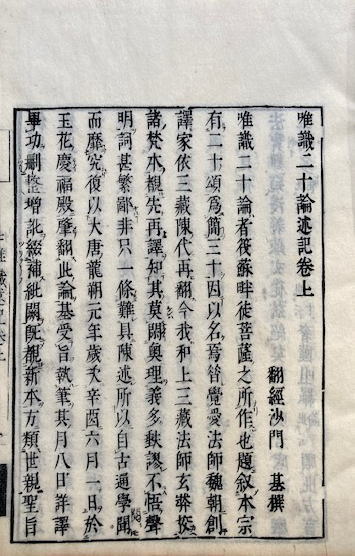 唯識二十論述記卷上
翻經沙門 基撰
唯識二十論者筏蘇畔徒菩薩之所作也題敘本宗
有二十頌爲簡三十因以名焉昔覺愛法師魏朝創
譯家依三藏陳代再翻今我和上三藏法師玄奘校
諸梵本覩先再譯知其莫闢奧理義多缺謬不悟聲
明詞甚繁鄙非只一條難具陳述所以自古通學閱
而靡究復以大唐龍朔元年歲次辛酉六月一日於
玉花慶福殿肇翻此論基受旨執筆其月八日詳譯
畢功刪整增訛綴補紕闕既覩新本方類世親聖旨